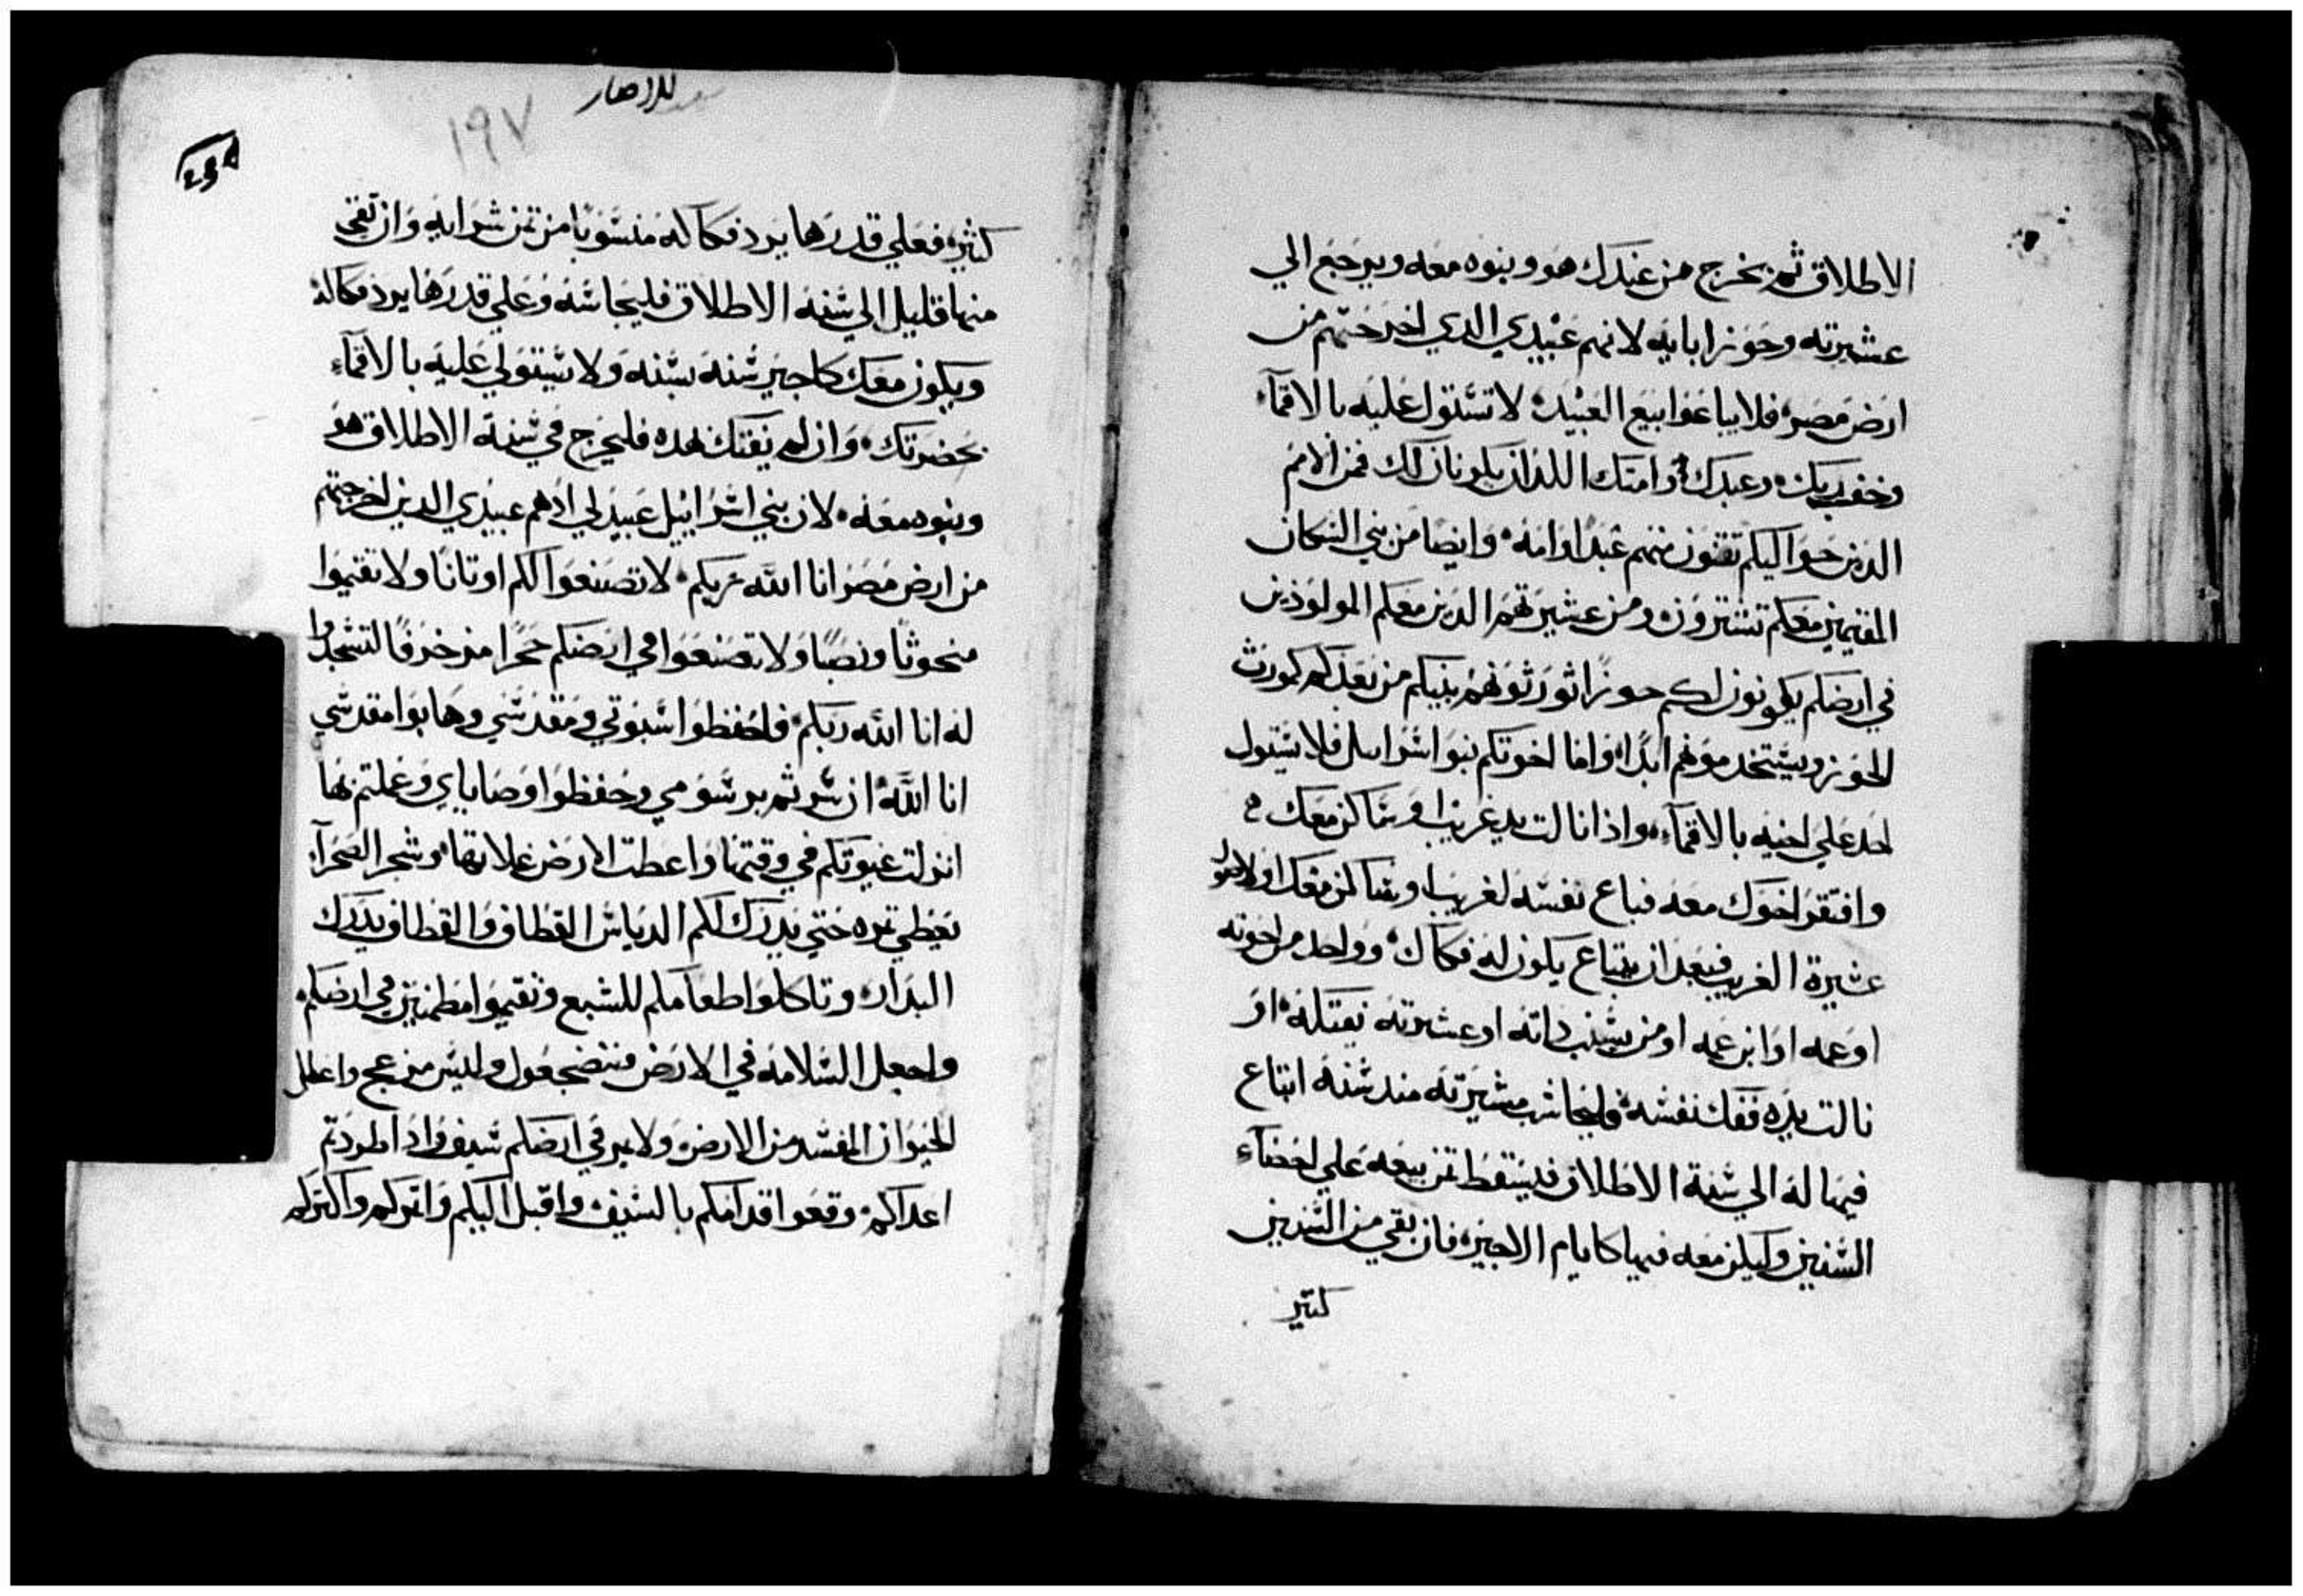 الاطلاق ثم يخرج من عندك هو وبنوه معه ويرجع الي
عشيرته وحوز ابايه لانهم عبيدي الدي اخرجتهم من
ارض مصر فلا يباعوا بيع العبيد لا تستول عليه بالاقمآء
وخف ربك وعبدك وامتك اللذان يكونان لك فمن الامم
الدين حواليكم تقنون منهم عبدا وامه وايضا من بني السكان
المقيمين معكم تشترون ومن عشيرتهم الدين معكم المولودين
في ارضكم يكونون لكم حوزا تورثونهم بنيكم من بعدكم كمورث
الحوز ويستخدموهم ابدا واما اخوتكم بنوا اسراييل فلا يستول
احد علي اخيه بالاقمآء واذا نالت يد غريب او ساكن معك
وافتقر اخوك معه فباع نفسه لغريب او ساكن معك او لاصل
عشيرة الغريب فبعد ان يبتاع يكون له فكاك وواحد من اخوته
او عمه او ابن عمه او من بنسب داته او عشيرته يفتكه او
نالت يده ففك نفسه فليحاسب مشيرته مند سنة ابتاع
فيما له الي سنة الاطلاق فيسقط تمن بيعه علي احصآء
السنين وليكن معه فيها كايام الاجير فان بقي من السنين
كتير
للاحبار
١٩٧
كثيره فعلي قدرها يرد فكاكه منسوبا من تمن شرايه وان بقي
منها قليل الي سنة الاطلاق فليحاسبه وعلي قدرها يرد فكاكه
ويكون معك كاجير سنه بسنه ولا يستولي عليه بالاقمآء
بحضرتك وان لم يفتك بهده فليخرج في سنة الاطلاق هو
وبنوه معه لان بني اسراييل عبيد لي ادهم عبيدي الدين اخرجتهم
من ارض مصر انا الله ربكم لا تصنعوا لكم اوتانا ولا تقيموا
منحوثا ونصبا ولا تصنعوا في ارضكم حجرا مزخرفا لتسجدوا
له انا الله ربكم فاحفظوا سبوتي ومقدسي وهابوا مقدسي
انا الله ان سرتم برسومي وحفظوا وصاياي وعملتم بها
انزلت غيوتكم في وقتها واعطت الارض غلاتها وشجر الصحرآء
تعطي تمره حتي يدرك لكم الدياس القطاف والقطاف يدرك
البدار وتاكلوا طعامكم للشبع وتقيموا مطمنين في ارضكم
واجعل السلامه في الارض فتضجعون وليس مزعج واعطل
الحيوان المفسد من الارض ولا يمر في ارضكم سيف وادا طردتم
اعداكم وقعوا قدامكم بالسيف واقبل اليكم واتمركم واكتركم